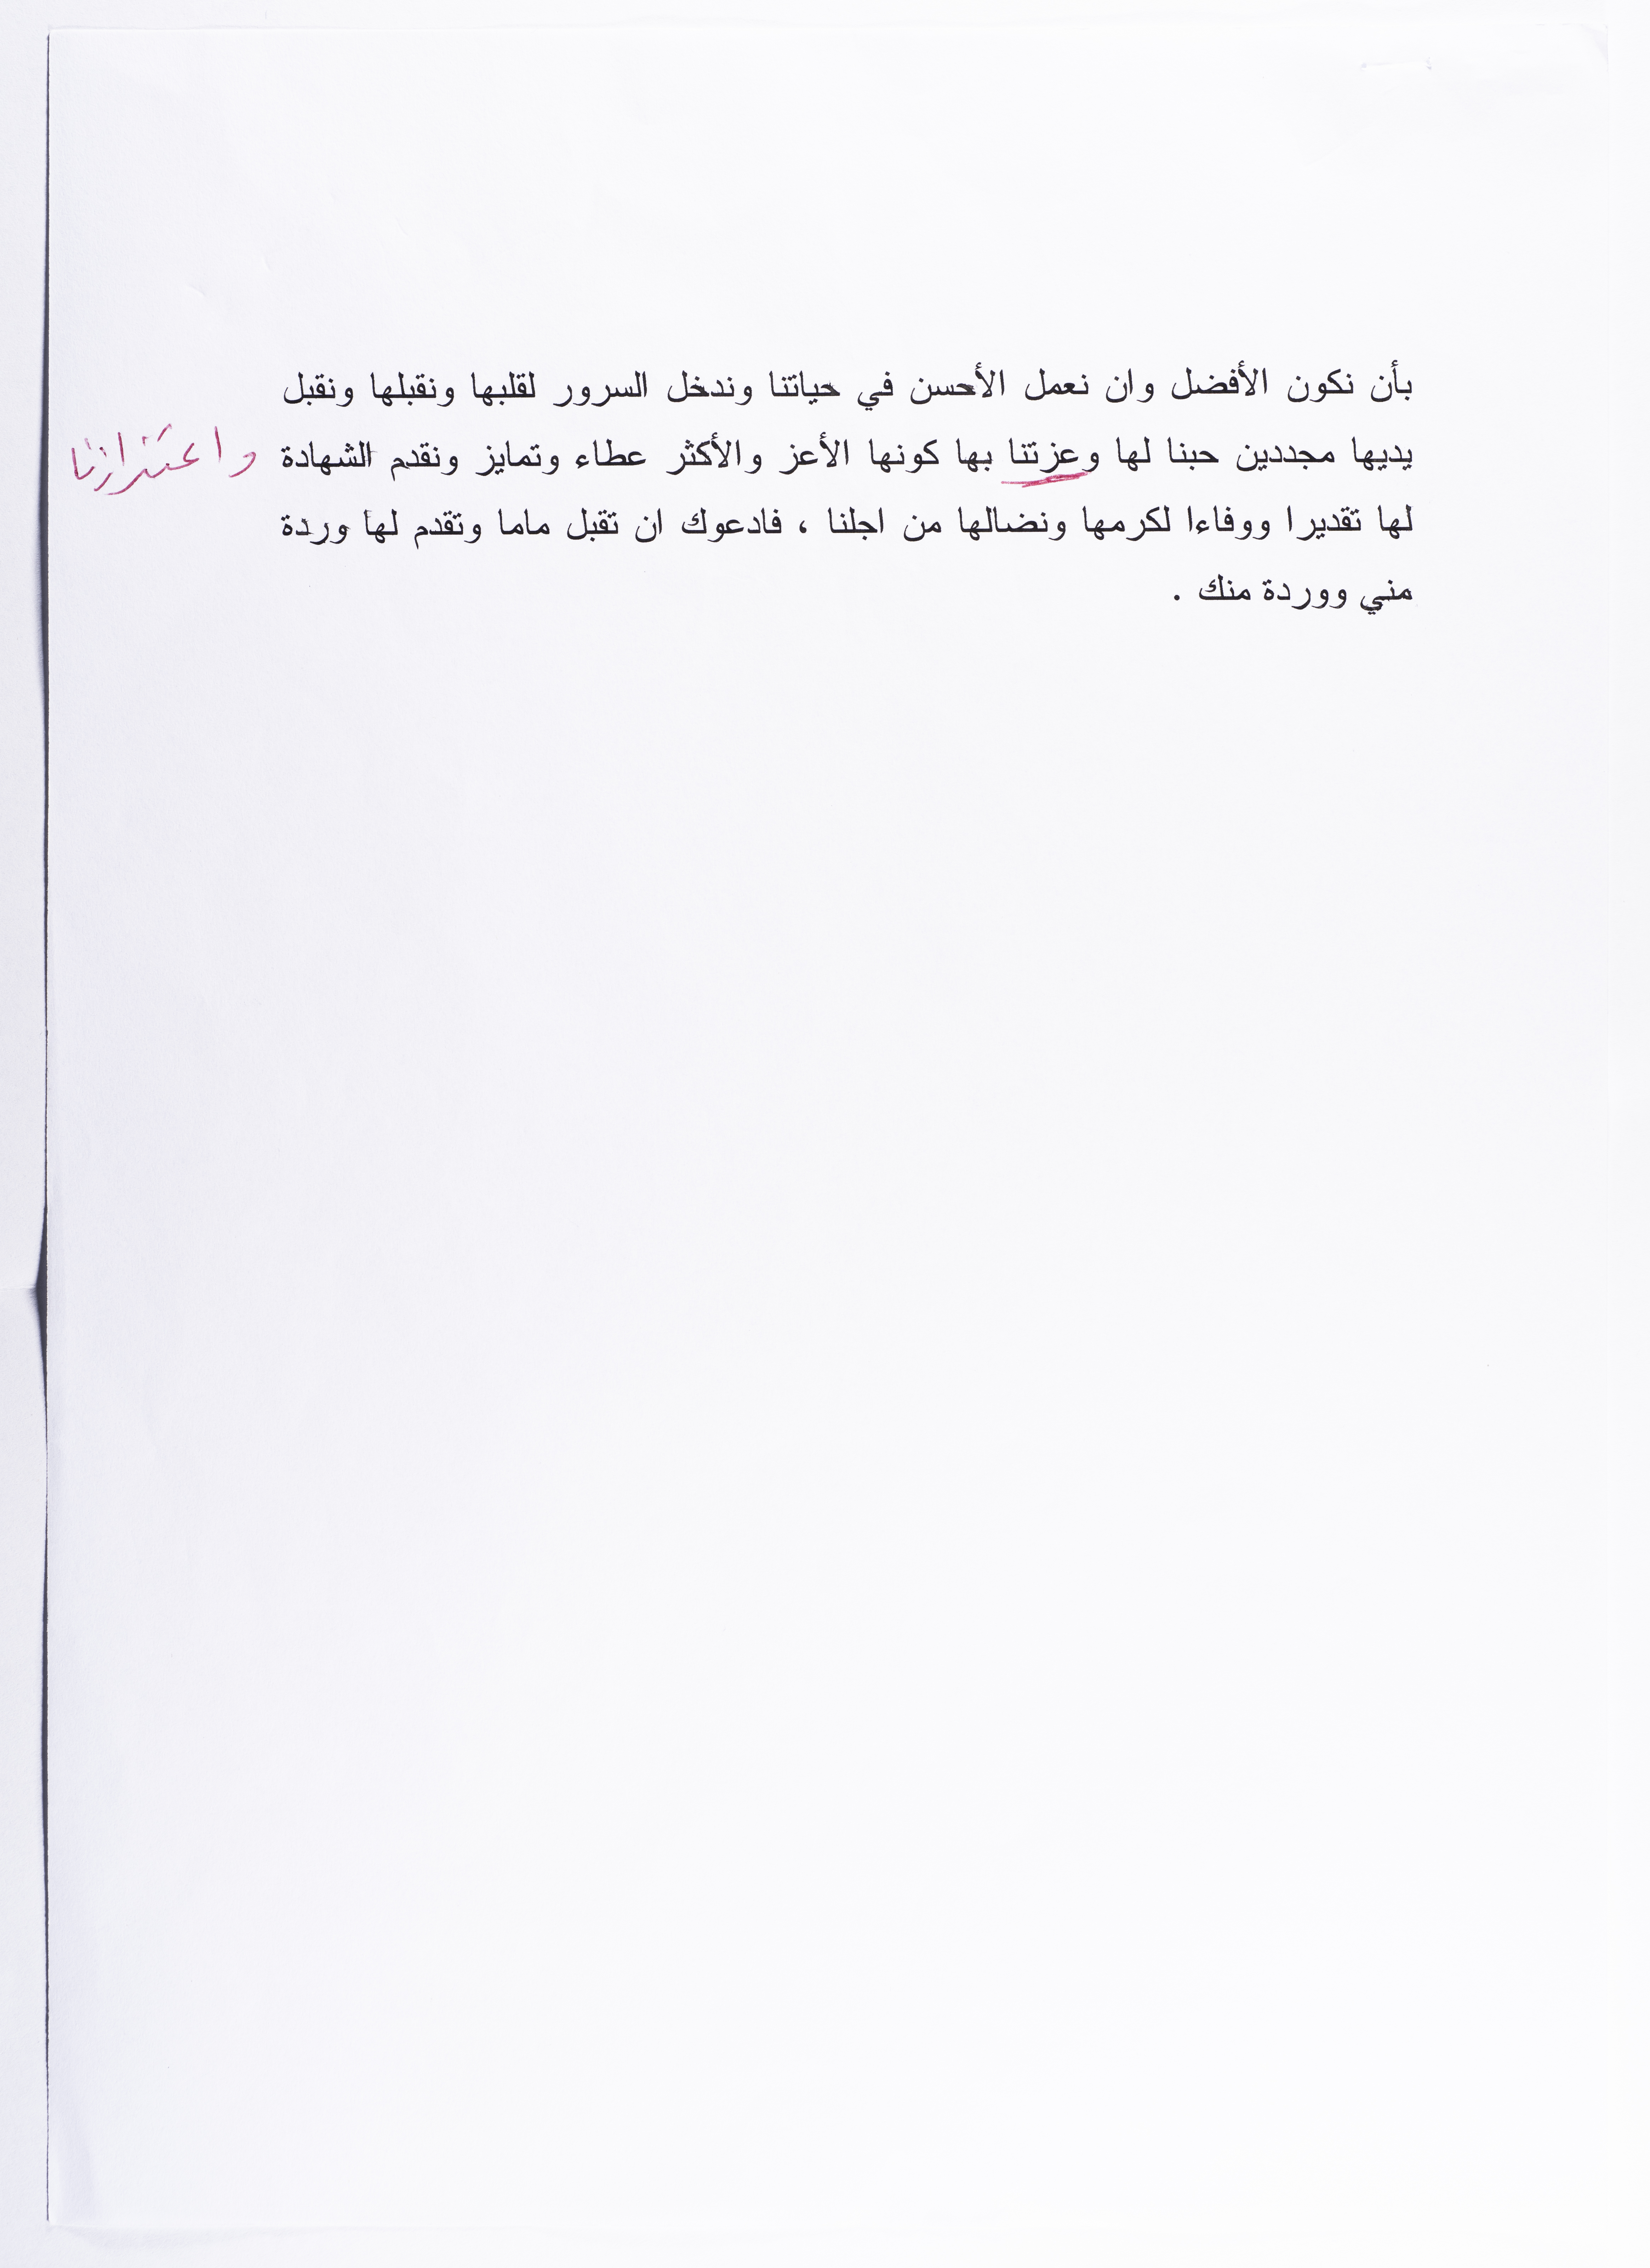 بأن نكون الأفضل وان نعمل الأحسن في حياتنا وندخل السرور لقلبها ونقبلها ونقبل
يديها مجددين حبنا لها وعزتنا بها كونها الأعز والأكثر عطاء وتمايز ونقدم الشهادة
واعتزازنا
لها تقديرا ووفاءا لكرمها ونضالها من اجلنا ، فادعوك ان تقبل ماما وتقدم لها وردة
مني ووردة منك .